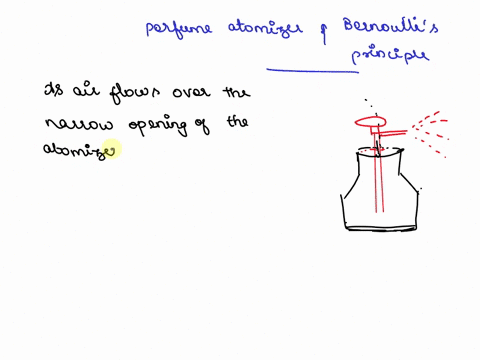 perfume atomizer & Bernoulli's
principle
As air flows over the
narrow opening of the
atomize